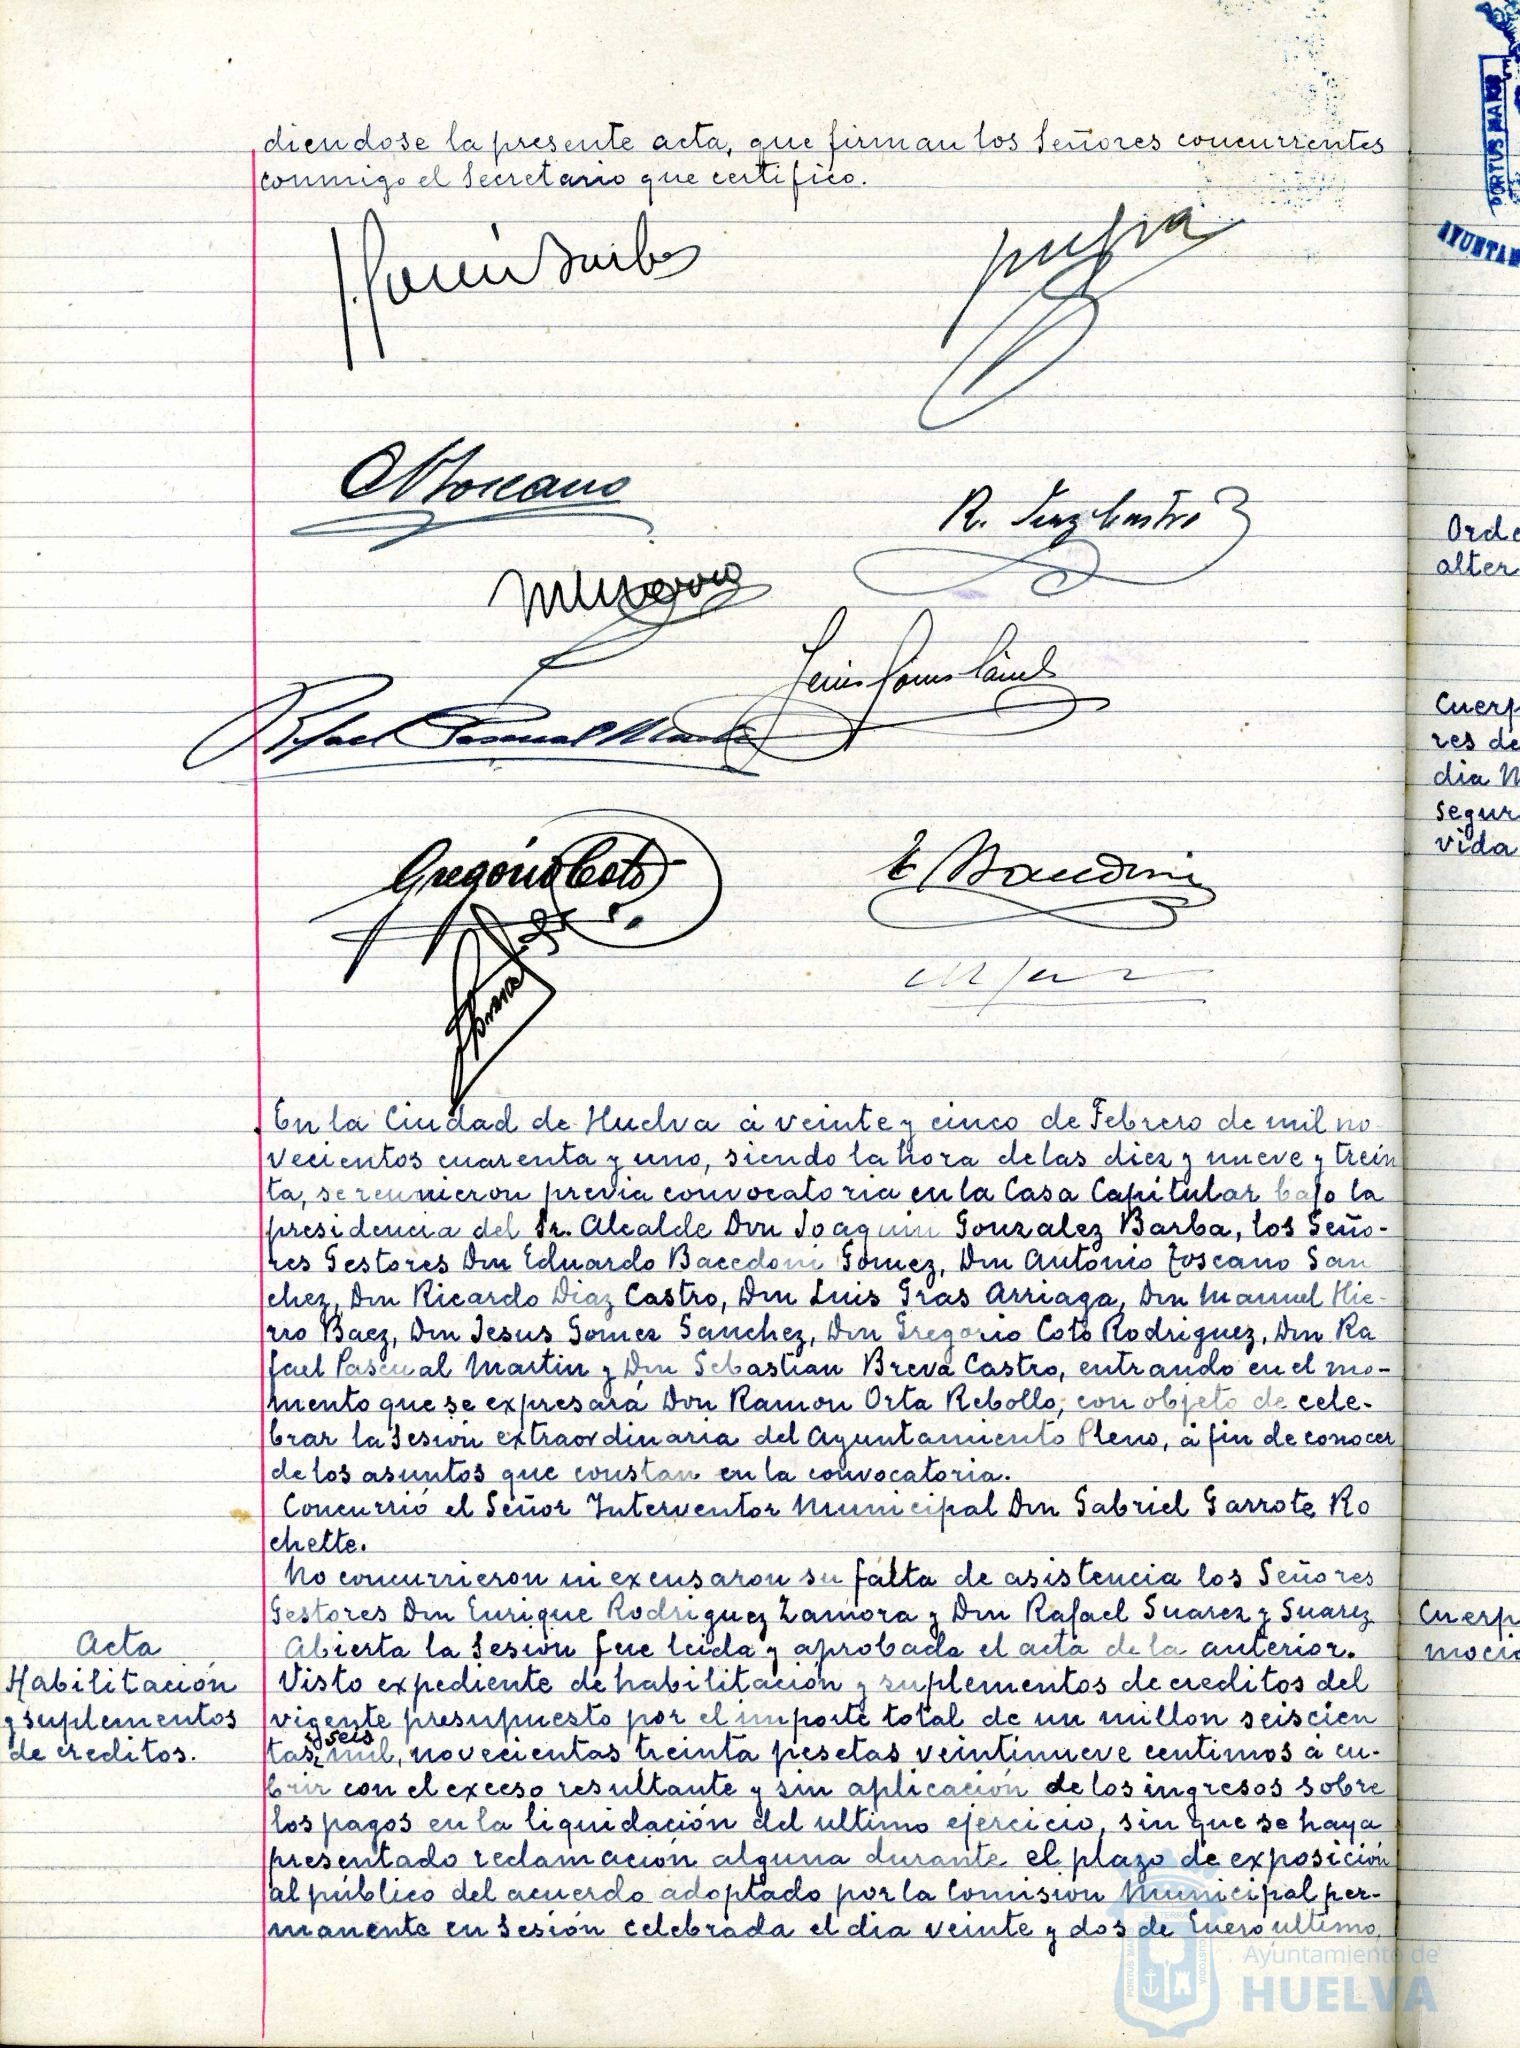 diendose la presente acta, que firman los Señores concurrentes
conmigo el Secretario que certifico.
R. Diaz Castro
Rafael Pascual Martin
Gregorio Coto
En la Ciudad de Huelva á veinte y cinco de Febrero de mil no
vecientos cuarenta y uno, siendo la hora de las diez y nueve y trein
ta, se reunieron previa convocatoria en la Casa Capitular bajo la
presidencia del Sr. Alcalde Don Joaquin Gonzalez Barba, los Seño-
res Gestores Don Eduardo Bacedoni Gomez, Don Antonio Toscano San
chez, Don Ricardo Diaz Castro, Don Luis Gras Arriaga, Don Manuel Hie-
rro Baez, Don Jesus Gomez Sanchez, Don Gregorio Coto Rodriguez, Don Ra
fael Pascual Martin y Don Sebastian Breva Castro, entrando en el mo-
mento que se expresará Don Ramon Orta Rebollo, con objeto de cele-
brar la Sesión extraordinaria del Ayuntamiento Pleno, á fin de conocer
de los asuntos que constan en la convocatoria.
Concurrió el Señor Interventor Municipal Don Gabriel Garrote Ro
chette.
No concurrieron ni excusaron su falta de asistencia los Señores
Gestores Don Enrique Rodriguez Zamora y Don Rafael Suarez y Suarez
Acta
Abierta la Sesión fue leida y aprobada el acta de la anterior.
Habilitación
y suplementos
de creditos.
Visto expediente de habilitación y suplementos de creditos del
vigente presupuesto por el importe total de un millon seiscien
y seis
tas mil, novecientas treinta pesetas veintinueve centimos á cu-
brir con el exceso resultante y sin aplicación de los ingresos sobre
los pagos en la liquidación del ultimo ejercicio, sin que se haya
presentado reclamación alguna durante el plazo de exposición
al público del acuerdo adoptado por la Comisión Municipal per-
manente en Sesión celebrada el dia veinte y dos de Enero último,
PORTUS MARIS
AYUNTAM
Orde
alter
Cuerp
res de
dia M
segur
vida
Cuerp
moció
Ayuntamiento de
HUELVA